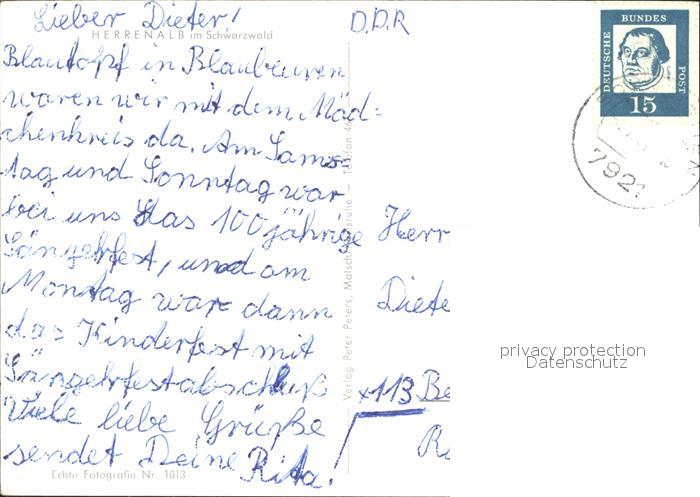 Lieber Dieter!
D.D.R
HERRENALB im Schwarzwald
Blautopf in Blaubeuren
waren wir mit dem Mäd=
chenkreis da. Am Sams=
tag und Sonntag war
bei uns das 100jährige
Sängerfest, und am
Montag war dann
das Kinderfest mit
Sängerfestabschluß
Viele liebe Grüße
sendet Deine Rita!
Echte Fotografie Nr. 1013
Verlag Peter Peters, Malsch
Karlsruhe — Telefon
DEUTSCHE
BUNDES
POST
15
7921
Herr
Diete
x113 Be
R
privacy protection
Datenschutz